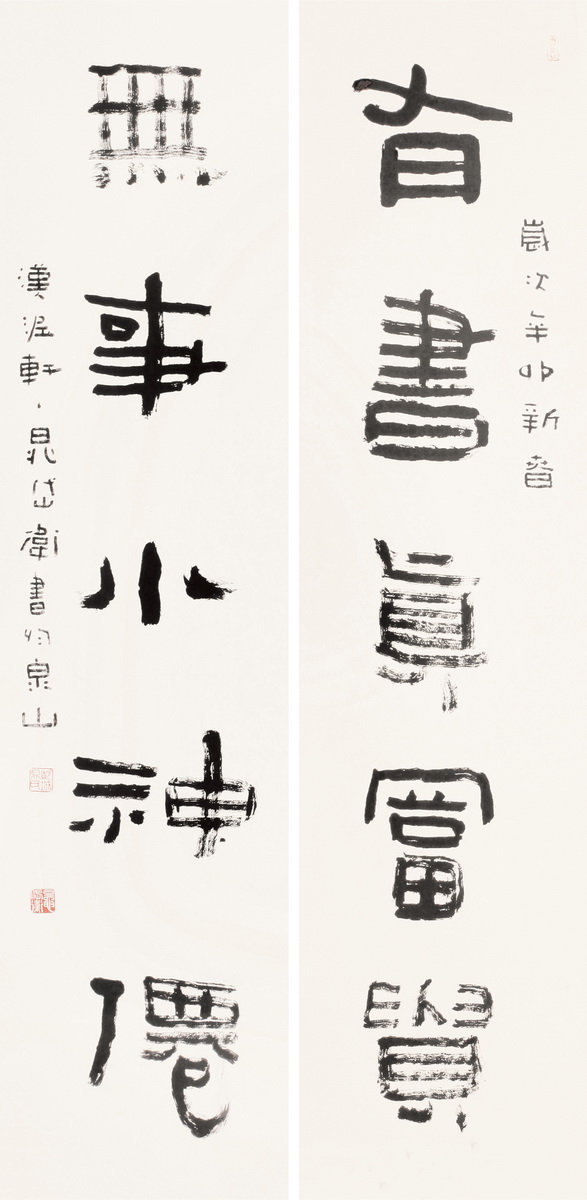 歲次辛卯新春
有書眞富貴
無事小神僊
漢軒、晁岱衛書於泉山